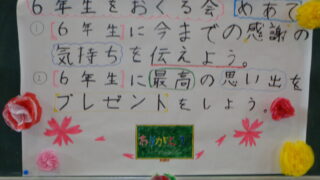 6年生をおくる会 めあて
① 6年生に今までの感謝の
気持ちを伝えよう。
② 6年生に最高の思い出を
プレゼントをしよう。
ありがとう